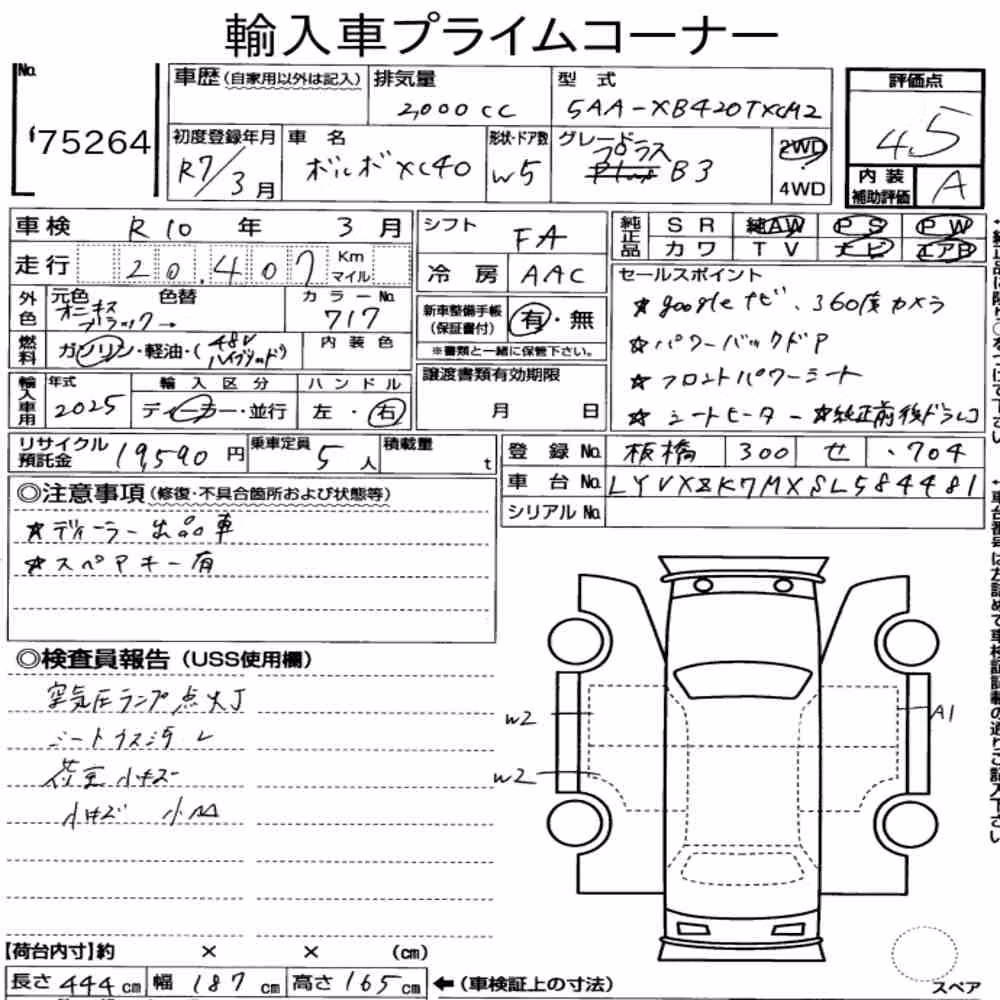 輸入車プライムコーナー
No.
175264
車歴(自家用以外は記入)
排気量
2,000cc
型式
5AA-XB420TXCM2
評価点
4.5
内装補助評価 A
初度登録年月
R7/3月
車名
ボルボXC40
形状・ドア数
W5
グレード
プラス
B3
2WD
4WD
車検 R10年 3月
走行 20,407 Km マイル
シフト FA
冷房 AAC
純正品 SR 純AW PS PW
カワ TV ナビ エアB
外色 元色 オニキスブラック→ 色替
カラーNo. 717
燃料 ガソリン・軽油・(48Vハイブリッド)
内装色
新車整備手帳(保証書付) 有・無
※書類と一緒に保管下さい。
セールスポイント
☆googleナビ、360度カメラ
☆パワーバックドア
☆フロントパワーシート
☆シートヒーター ☆純正前後ドラレコ
輸入車用 年式 2025
輸入区分 ディーラー・並行
ハンドル 左・右
譲渡書類有効期限
月 日
リサイクル預託金 19,590円
乗車定員 5人
積載量 t
登録No. 板橋 300 せ ・704
車台No. LYVXZK7MXSL584481
シリアルNo.
◎注意事項(修復・不具合箇所および状態等)
☆ディーラー出品車
☆スペアキー有
◎検査員報告(USS使用欄)
空気圧ランプ点灯
シートスス汚レ
荷室小キズ
小キズ 小凹
W2
W2
A1
【荷台内寸】約 × × (cm)
長さ444cm 幅187cm 高さ165cm
←(車検証上の寸法)
スペア